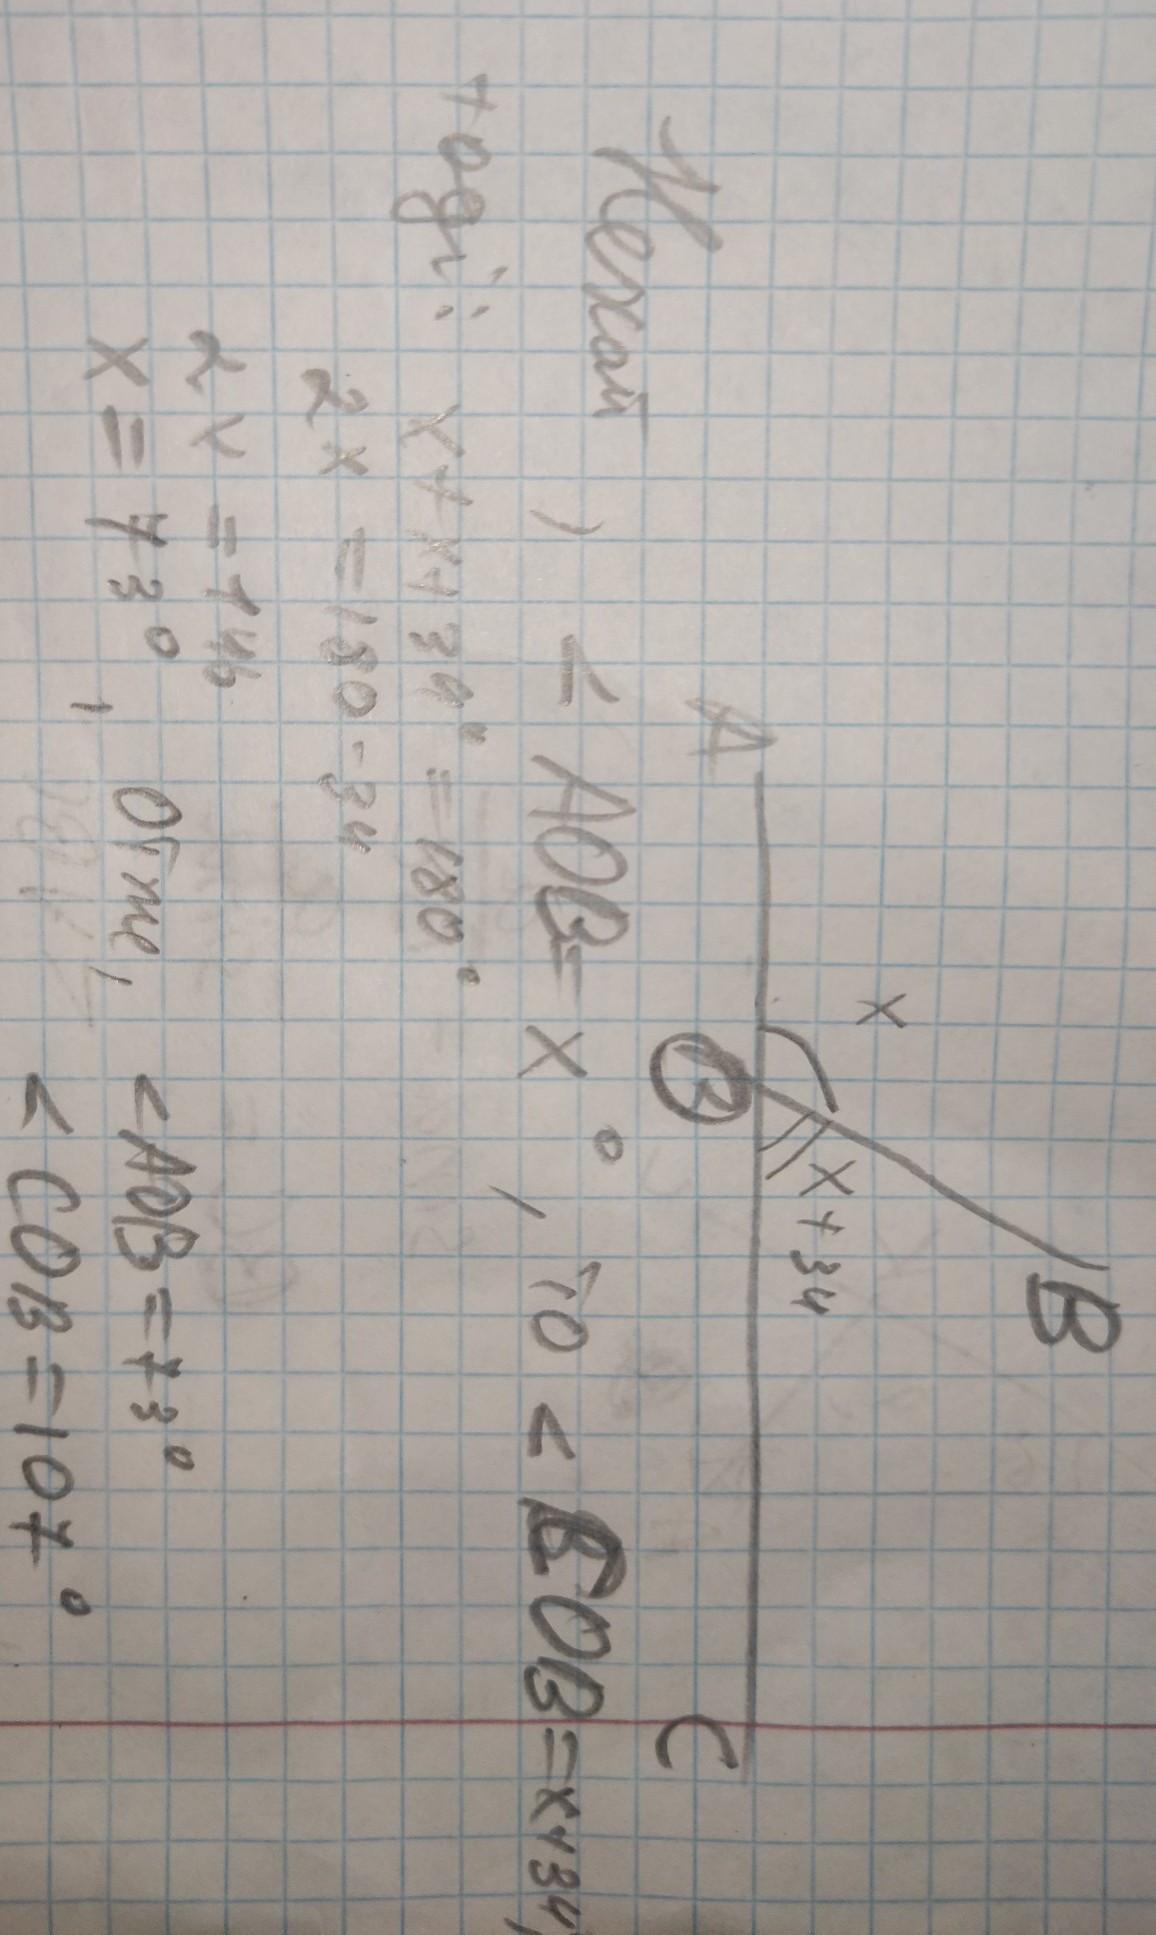 B
x
x+34
A
C
Нехай < AOB= x°, то < COB=x+34,
тоді: x+x+34°=180°
2x =180-34
2x =146
x=73°, Отже, <AOB=73°
<COB=107°